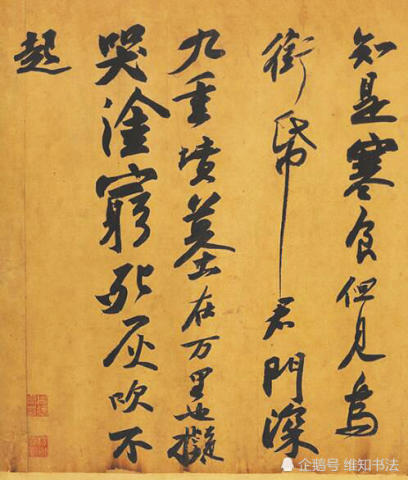 知是寒食但見烏
銜帋君門深
九重墳墓在万里也擬
哭塗窮死灰吹不
起
企鹅号 维知书法